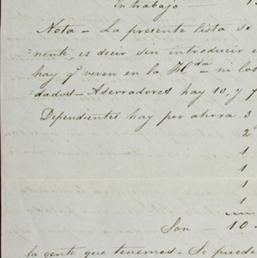 Intrabajo
Nota - La presente lista se
nente, es decir sin introducir
hay qe. viven en la Hda. ni los
dados - Aserradores hay 10, y 7
Dependientes hay por ahora 3
2
1
1
1
1
Son - 10
la gente que tenemos - Se puede